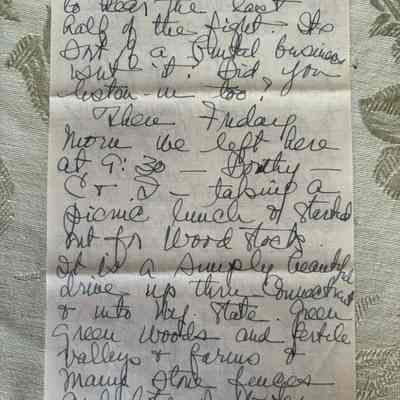 to hear the last
half of the fight. Its
sort of a brutal business
isn't it? Did you
listen-in too?
Then Friday
morn we left here
at 9:30 — Dorothy —
C & I — taking a
picnic lunch & started
out for Woodstock.
It is a simply beautiful
drive up thru Connecticut
& into N.Y. State. Green
Green Woods and fertile
valleys & farms &
Many stone fences
and